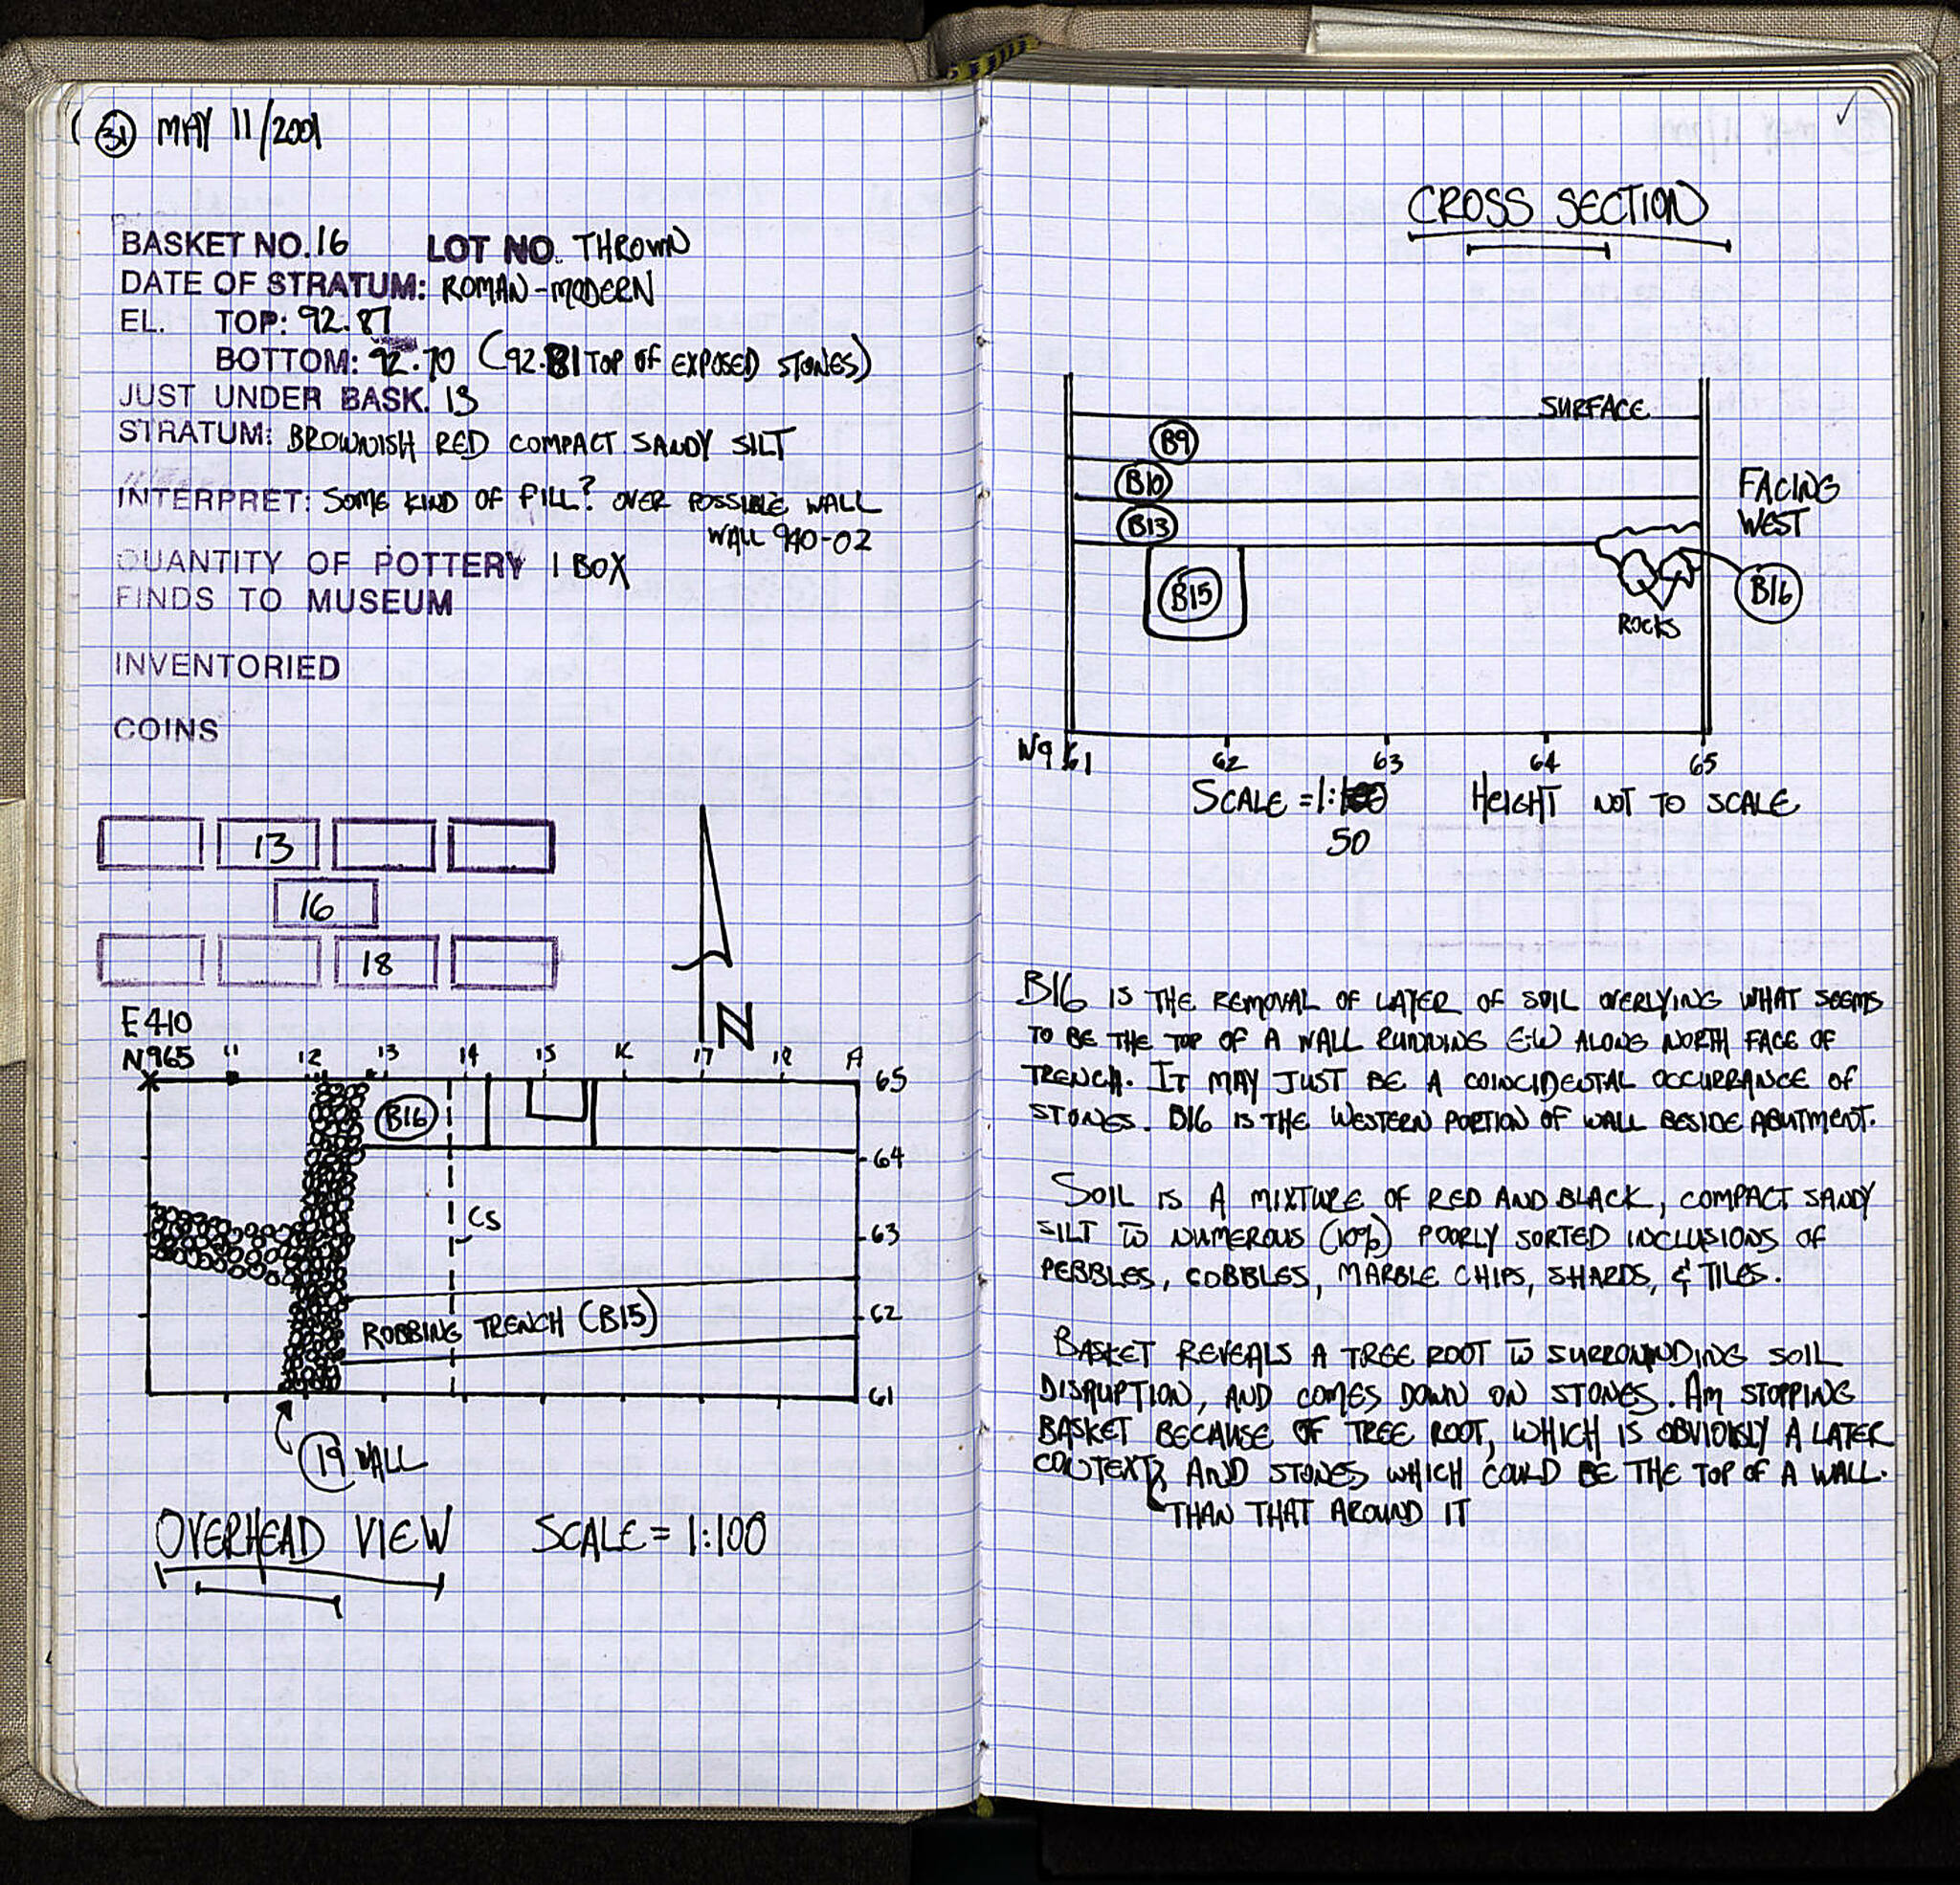 31 MAY 11/2001
BASKET NO. 16 LOT NO. THROWN
DATE OF STRATUM: ROMAN-MODERN
EL. TOP: 92.87
BOTTOM: 92.70 (92.81 TOP OF EXPOSED STONES)
JUST UNDER BASK. 13
STRATUM: BROWNISH RED COMPACT SANDY SILT
INTERPRET: SOME KIND OF FILL? OVER POSSIBLE WALL
WALL 940-02
QUANTITY OF POTTERY 1 BOX
FINDS TO MUSEUM
INVENTORIED
COINS
13
16
18
N
E410
N965 11 12 13 14 15 16 17 18 A
65
B16
64
CS
63
62
ROBBING TRENCH (B15)
61
19 WALL
OVERHEAD VIEW SCALE = 1:100
CROSS SECTION
SURFACE
B9
B10
B13
FACING
WEST
B15
B16
ROCKS
N9 61 62 63 64 65
SCALE = 1: HEIGHT NOT TO SCALE
50
B16 IS THE REMOVAL OF LAYER OF SOIL OVERLYING WHAT SEEMS
TO BE THE TOP OF A WALL RUNNING E-W ALONG NORTH FACE OF
TRENCH. IT MAY JUST BE A COINCIDENTAL OCCURRANCE OF
STONES. B16 IS THE WESTERN PORTION OF WALL BESIDE ABUTMENT.
SOIL IS A MIXTURE OF RED AND BLACK, COMPACT SANDY
SILT W NUMEROUS (10%) POORLY SORTED INCLUSIONS OF
PEBBLES, COBBLES, MARBLE CHIPS, SHARDS, & TILES.
BASKET REVEALS A TREE ROOT W SURROUNDING SOIL
DISRUPTION, AND COMES DOWN ON STONES. AM STOPPING
BASKET BECAUSE OF TREE ROOT, WHICH IS OBVIOUSLY A LATER
CONTEXT, AND STONES WHICH COULD BE THE TOP OF A WALL.
THAN THAT AROUND IT